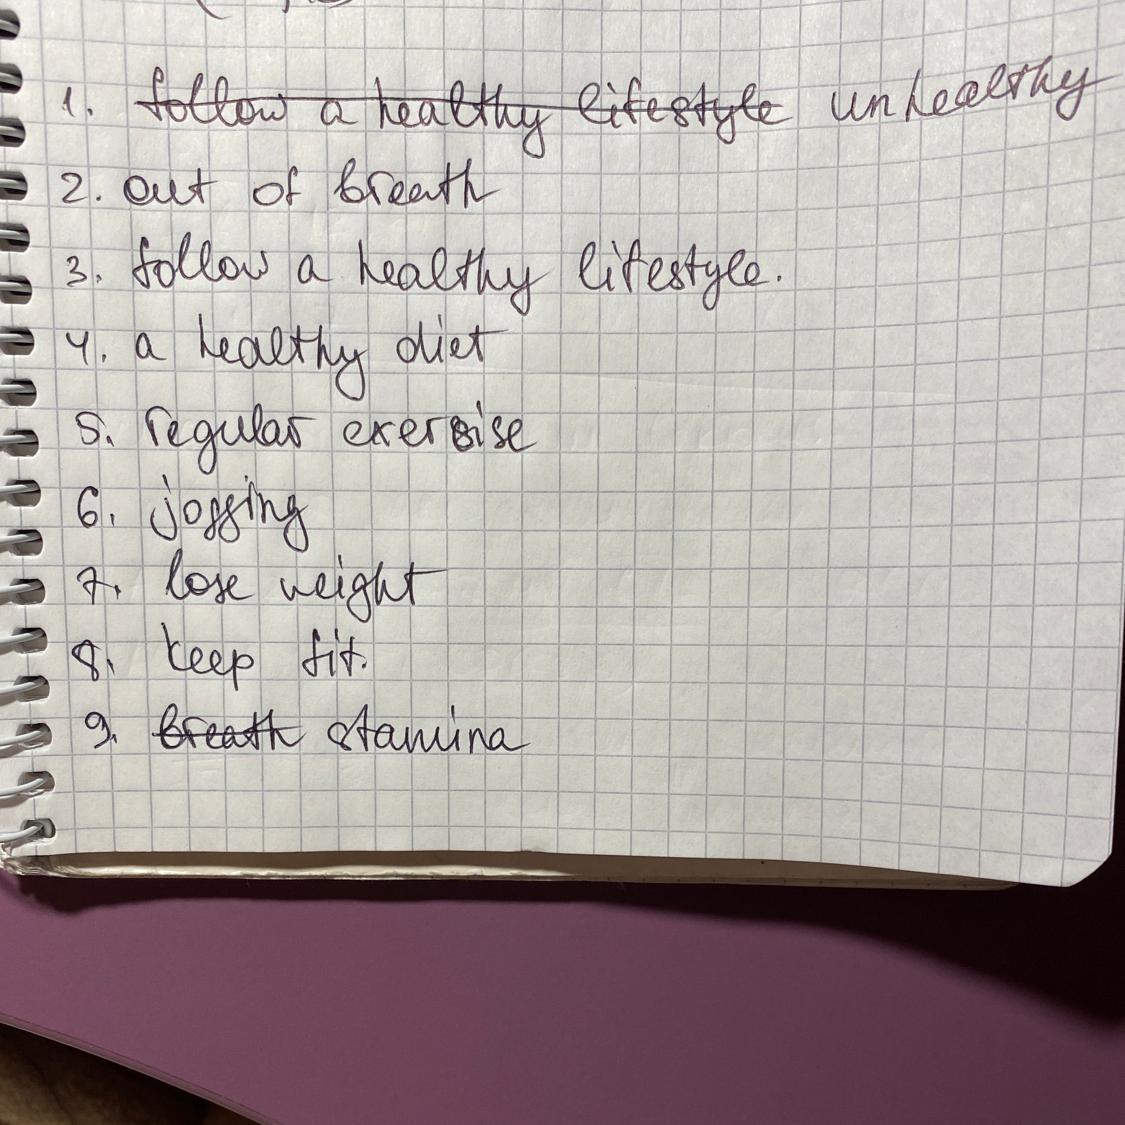 1. follow a healthy lifestyle unhealthy
2. out of breath
3. follow a healthy lifestyle.
4. a healthy diet
5. regular exercise
6. jogging
7. lose weight
8. keep fit.
9. breath stamina